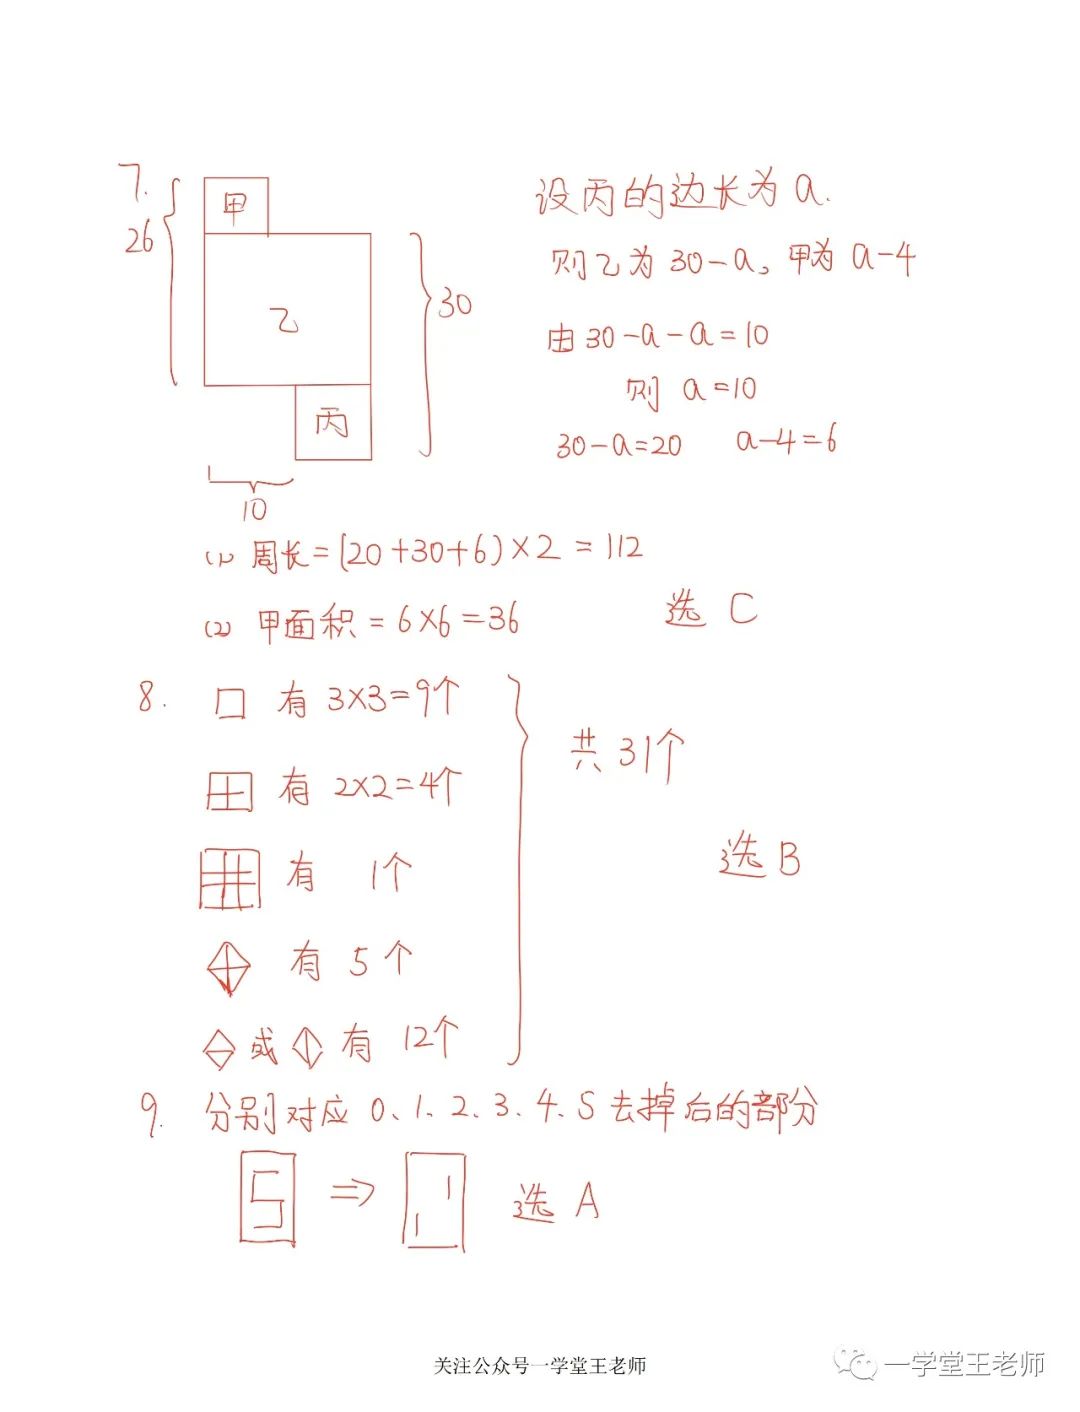 7.
甲
26
乙
30
丙
10
设丙的边长为a.
则乙为30-a,甲为a-4
由30-a-a=10
则 a=10
30-a=20 a-4=6
(1) 周长=(20+30+6)×2=112
(2) 甲面积=6×6=36 选 C
8. 有 3×3=9个
有 2×2=4个
共31个
选B
有 1个
有 5个
或 有 12个
9. 分别对应 0、1、2、3、4、5去掉后的部分
5 ⇒ 选 A
关注公众号一学堂王老师
一学堂王老师